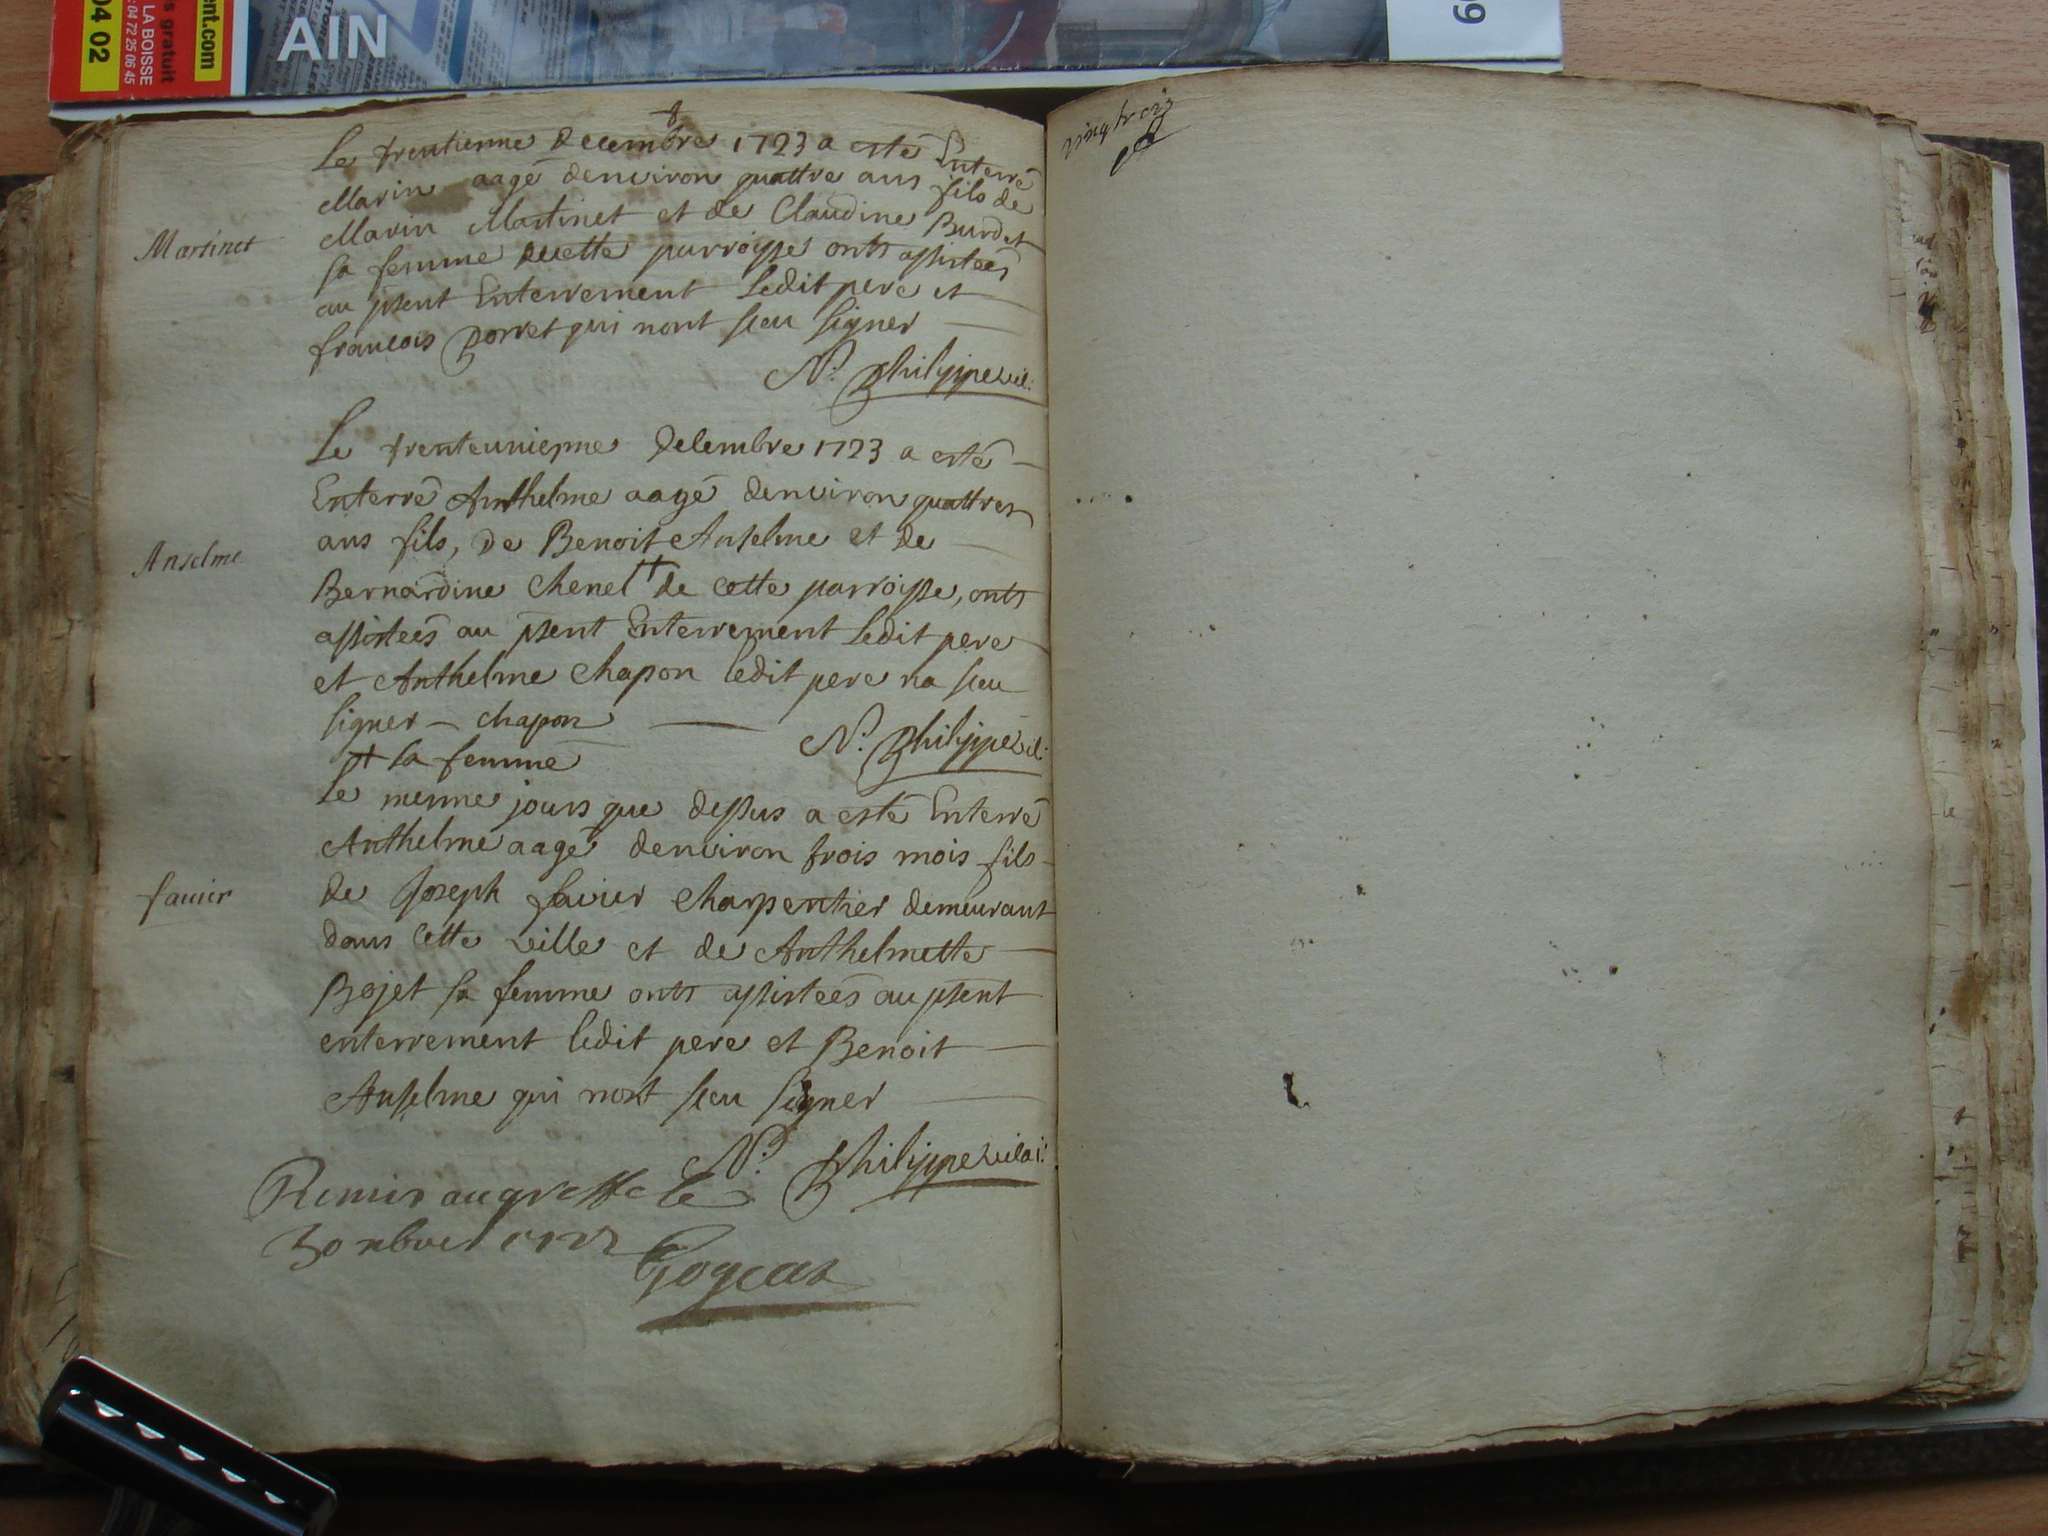 ent.com
s gratuit
LA BOISSE
04 72 25 06 45
04 02
AIN
09
Le trentienne Decembre 1723 a esté Enterré
Marin aagé denviron quattre ans fils de
Marin Martinet et de Claudine Burdet
sa femme de cette parroisse onts assistées
au psent Enterrement Ledit pere et
francois Borret qui nont sceu signer
N. Philippe vic.
Martinet
Le trenteuniesme Decembre 1723 a esté
Enterré Anthelme aagé denviron quattres
ans fils, de Benoit Anselme et de
Bernardine Chenel †† de cette parroisse, onts
assistées au psent Enterrement Ledit pere
et Anthelme Chapon ledit pere na sceu
signer – chapon
N. Philippe vic.
†† sa femme
Anselme
Le mesme jours que dessus a esté Enterré
Anthelme aagé denviron trois mois fils
de Joseph favier Charpentier demeurant
dans Cette ville et de Anthelmette
Bojet sa femme onts assistées au psent
enterrement ledit pere et Benoit
Anselme qui nont sceu signer
N. Philippe vicai.
favier
Remis au greffe le
30 nbre
vingtrois